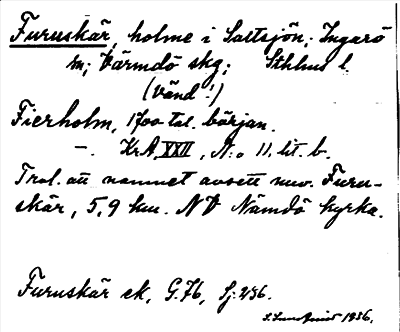 Furuskär, holme i Saltsjön; Ingarö
sn; Värmdö skg; Sthlms l.
(vänd!)
Fierholm, 1700 tal. början.
—. KrA XXII, N:o 11. lit. b.
Trol. att namnet avsett nuv. Furu-
skär, 5,9 km. NV Nämdö kyrka.
Furuskär ek, G. 76, Sj: 236.
1936.